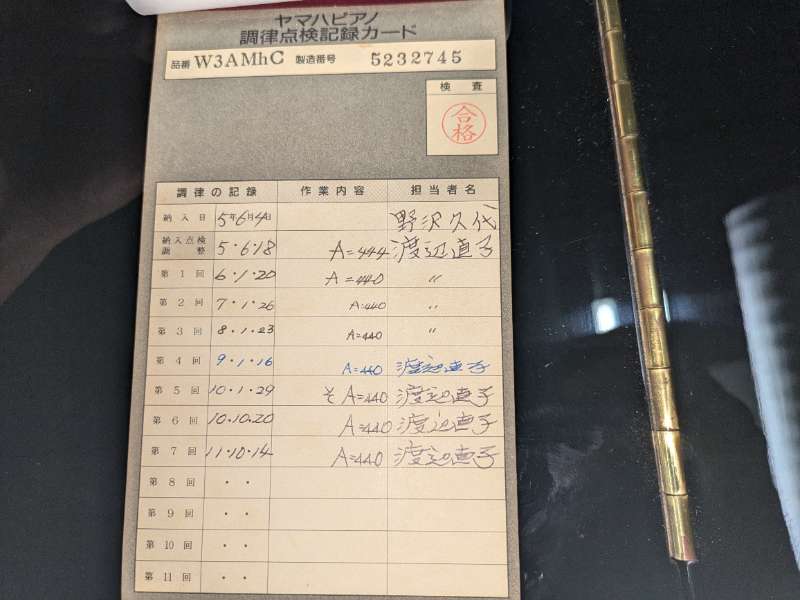 ヤマハピアノ
調律点検記録カード
品番 W3AMhC 製造番号 5232745
検査
合格
調律の記録 作業内容 担当者名
納入日 5年6月4日 野沢久代
納入点検調整 5・6・18 A=444 渡辺直子
第1回 6・1・20 A=440 〃
第2回 7・1・26 A=440 〃
第3回 8・1・23 A=440 〃
第4回 9・1・16 A=440 渡辺直子
第5回 10・1・29 そ A=440 渡辺直子
第6回 10・10・20 A=440 渡辺直子
第7回 11・10・14 A=440 渡辺直子
第8回 ・・
第9回 ・・
第10回 ・・
第11回 ・・